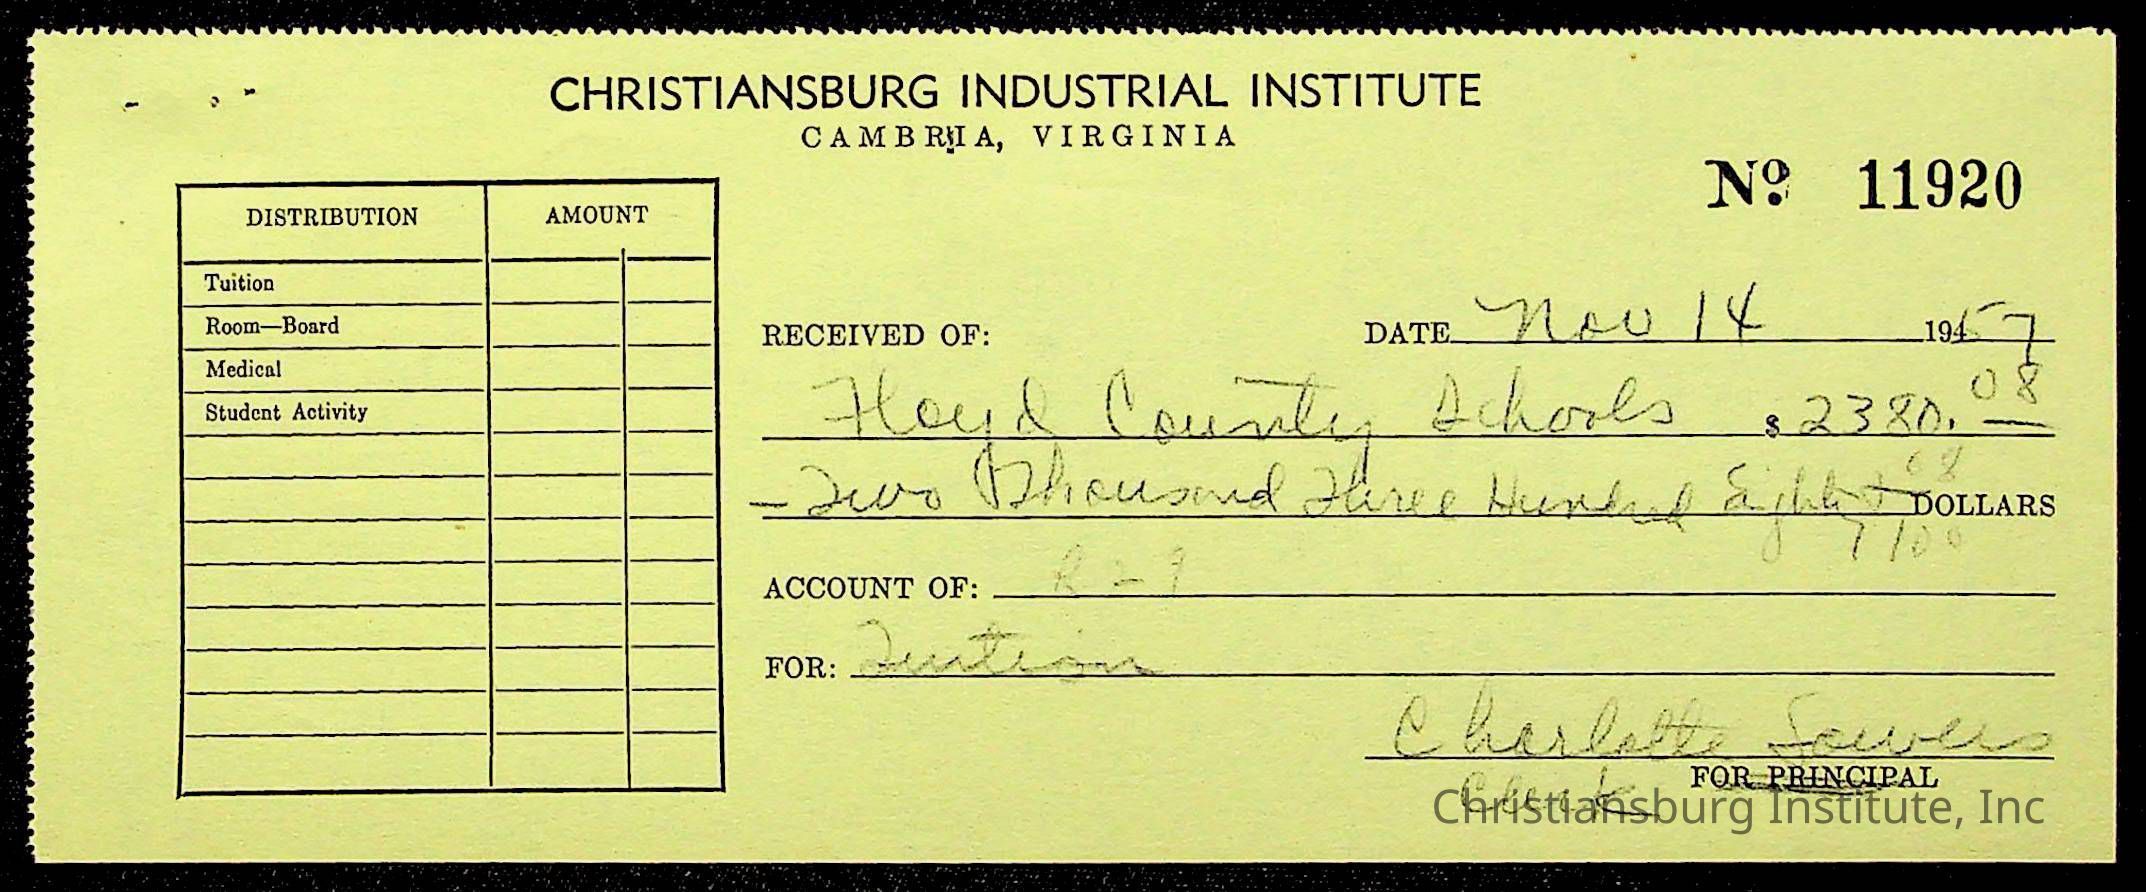 CHRISTIANSBURG INDUSTRIAL INSTITUTE
CAMBRIA, VIRGINIA
No 11920
DISTRIBUTION AMOUNT
Tuition
Room—Board
Medical
Student Activity
RECEIVED OF: DATE Nov 14 1957
Floyd County Schools $ 2380.08
Two Thousand Three Hundred Eighty + 08/100 DOLLARS
ACCOUNT OF: R-9
FOR: Tuition
Charlotte Sowers
FOR PRINCIPAL
Clerk
Christiansburg Institute, Inc